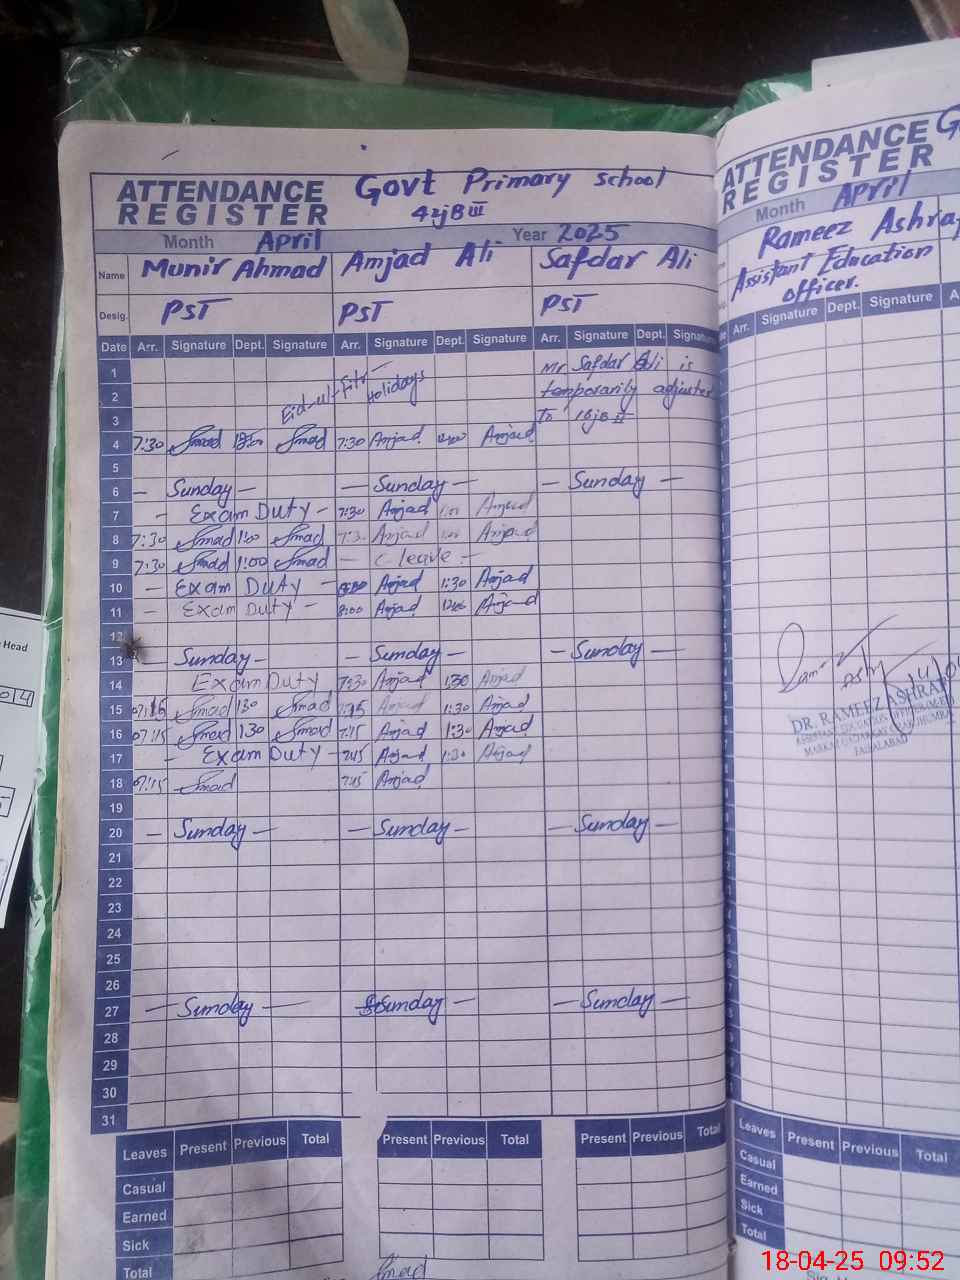 ATTENDANCE REGISTER Govt Primary School
42jB III
Month April Year 2025
Name Munir Ahmad Amjad Ali Safdar Ali
Desig. PST PST PST
Date Arr. Signature Dept. Signature Arr. Signature Dept. Signature Arr. Signature Dept. Signature
1 Mr Safdar Ali is
2 Eid-ul-Fitr Holidays temporarily adjusted
3 To
4 7:30 7:30 Amjad Amjad
5
6 - Sunday - - Sunday - - Sunday -
7 - Exam Duty - 7:30 Amjad 1:00 Amjad
8 7:30 1:00 Amjad Amjad
9 7:30 1:00 - C leave -
10 - Exam Duty - Amjad 1:30 Amjad
11 - Exam Duty - 8:00 Amjad Amjad
12
13 - Sunday - - Sunday - - Sunday -
14 Exam Duty 7:30 Amjad 1:30 Amjad
15 07:15 130 7:15 Amjad 1:30 Amjad
16 07:15 130 7:15 Amjad 1:30 Amjad
17 - Exam Duty - 7:45 Amjad 1:30 Amjad
18 07:15 7:45 Amjad
19
20 - Sunday - - Sunday - - Sunday -
21
22
23
24
25
26
27 - Sunday - Sunday - - Sunday -
28
29
30
31
Leaves Present Previous Total Present Previous Total Present Previous Total
Casual
Earned
Sick
Total
ATTENDANCE REGISTER
Month April
Rameez Ashraf
Assistant Education
officer.
Arr. Signature Dept. Signature
DR. RAMEEZ ASHRAF
FAISALABAD
Leaves Present Previous Total
Casual
Earned
Sick
Total
Head
18-04-25 09:52